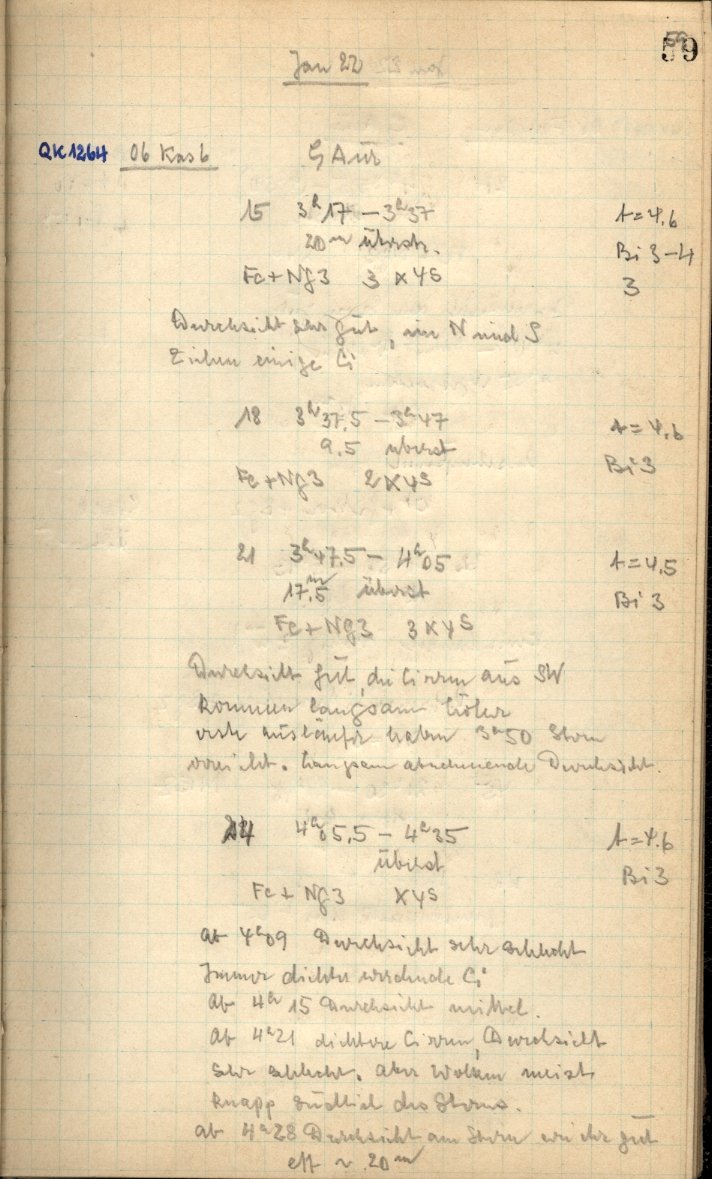 59
Jan 22
QK1264 06 Kas b ζ Aur
15 3h17 – 3h37 A=4,6
20m überst. Bi 3–4
Fe+Ng3 3 x 4s 3
Durchsicht sehr gut, im N und S
ziehen einige Ci
18 3h37,5 – 3h47 A=4,6
9,5 überst Bi 3
Fe+Ng3 2x4s
21 3h47,5 – 4h05 A=4,5
17,5m überst Bi 3
Fe+Ng3 3x4s
Durchsicht gut, die Cirren aus SW
kommen langsam höher
erste Ausläufer haben 3h50 Stern
erreicht. Langsam abnehmende Durchsicht.
24 4h05,5 – 4h35 A=4,6
überst Bi 3
Fe + Ng3 x4s
ab 4h09 Durchsicht sehr schlecht
Immer dichter werdende Ci
ab 4h15 Durchsicht mittel.
ab 4h21 dichtere Cirren, Durchsicht
sehr schlecht. Aber Wolken meist
knapp südlich des Sterns.
ab 4h28 Durchsicht am Stern wieder gut
eff ~ 20m